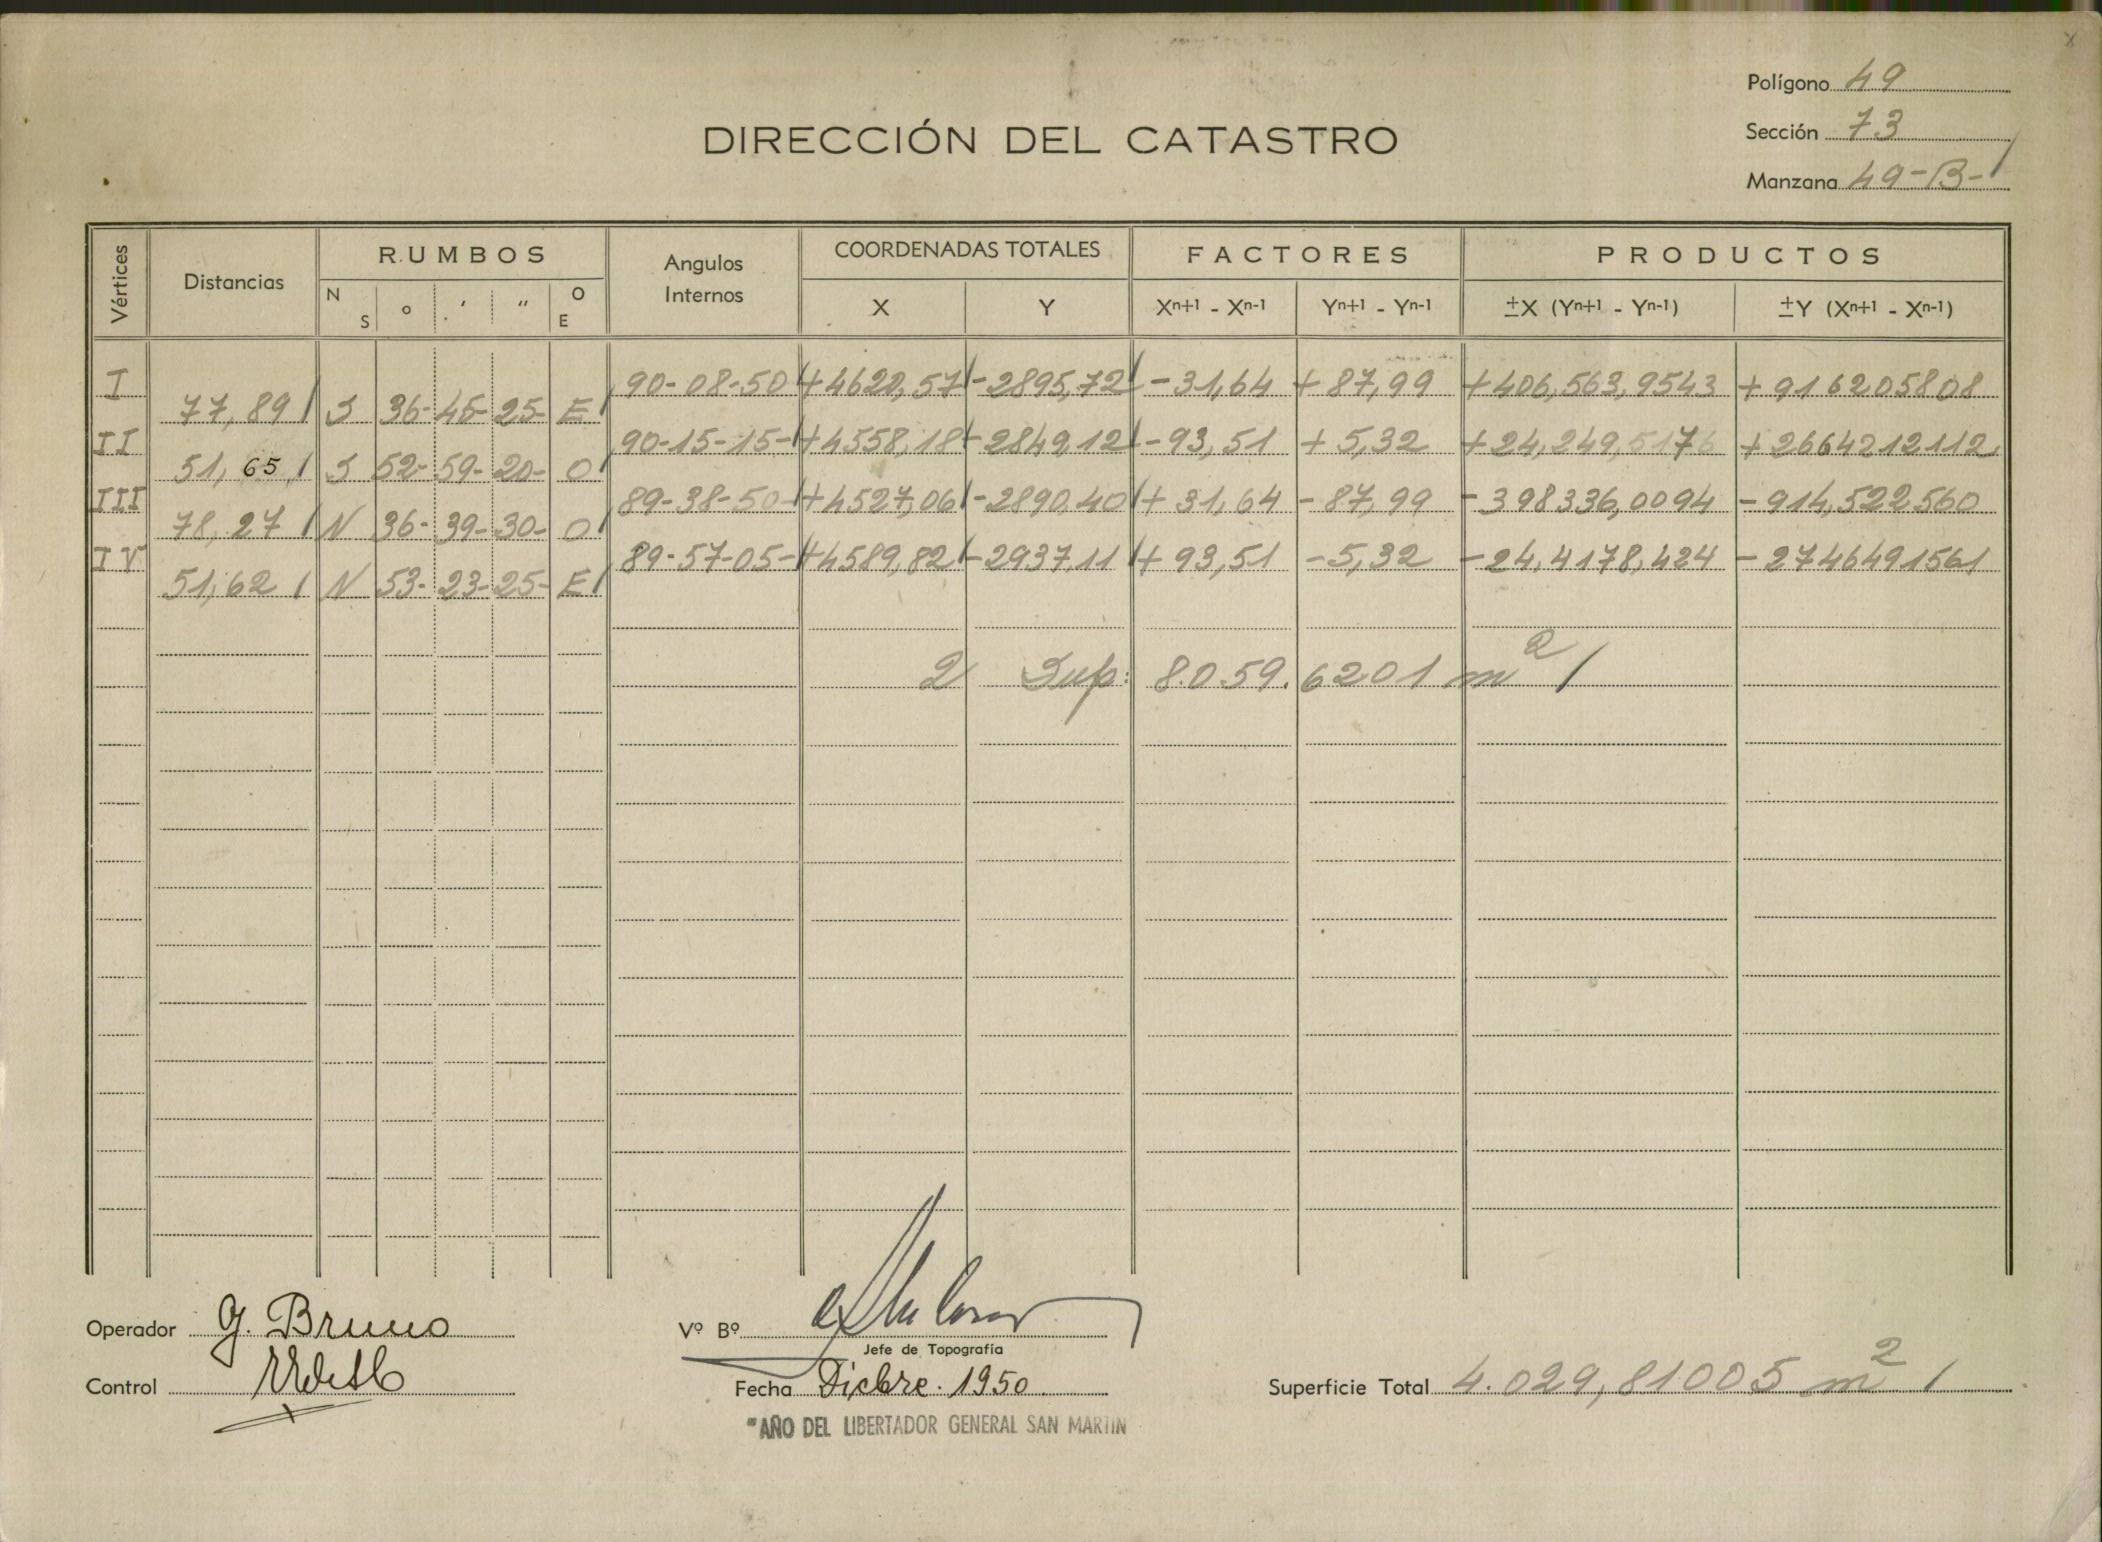 Polígono 49
DIRECCIÓN DEL CATASTRO
Sección 73
Manzana 49-B-
Vértices Distancias RUMBOS Angulos Internos COORDENADAS TOTALES FACTORES PRODUCTOS
N S o ' " O E X Y Xn+1 - Xn-1 Yn+1 - Yn-1 ±X (Yn+1 - Yn-1) ±Y (Xn+1 - Xn-1)
I 90-08-50 +4622,57 -2895,72 -31,64 +87,99 +406,563,9543 +916205808
77,89 S 36- 45- 25- E
II 90-15-15- +4558,18 -2849,12 -93,51 +5,32 +24,249,5176 +2664212112
51,65 S 52- 59- 20- O
III 89-38-50- +4527,06 -2890,40 +31,64 -87,99 -398336,0094 -914,522560
78,27 N 36- 39- 30- O
IV 89-57-05- +4589,82 -2937,11 +93,51 -5,32 -24,4178,424 -2746491561
51,62 N 53- 23- 25- E
2 Sup: 8.059.6201 m2
Operador G. Bruno
Vº Bº
Jefe de Topografía
Control
Fecha Dicbre. 1950
Superficie Total 4.029,81005 m2
"AÑO DEL LIBERTADOR GENERAL SAN MARTIN